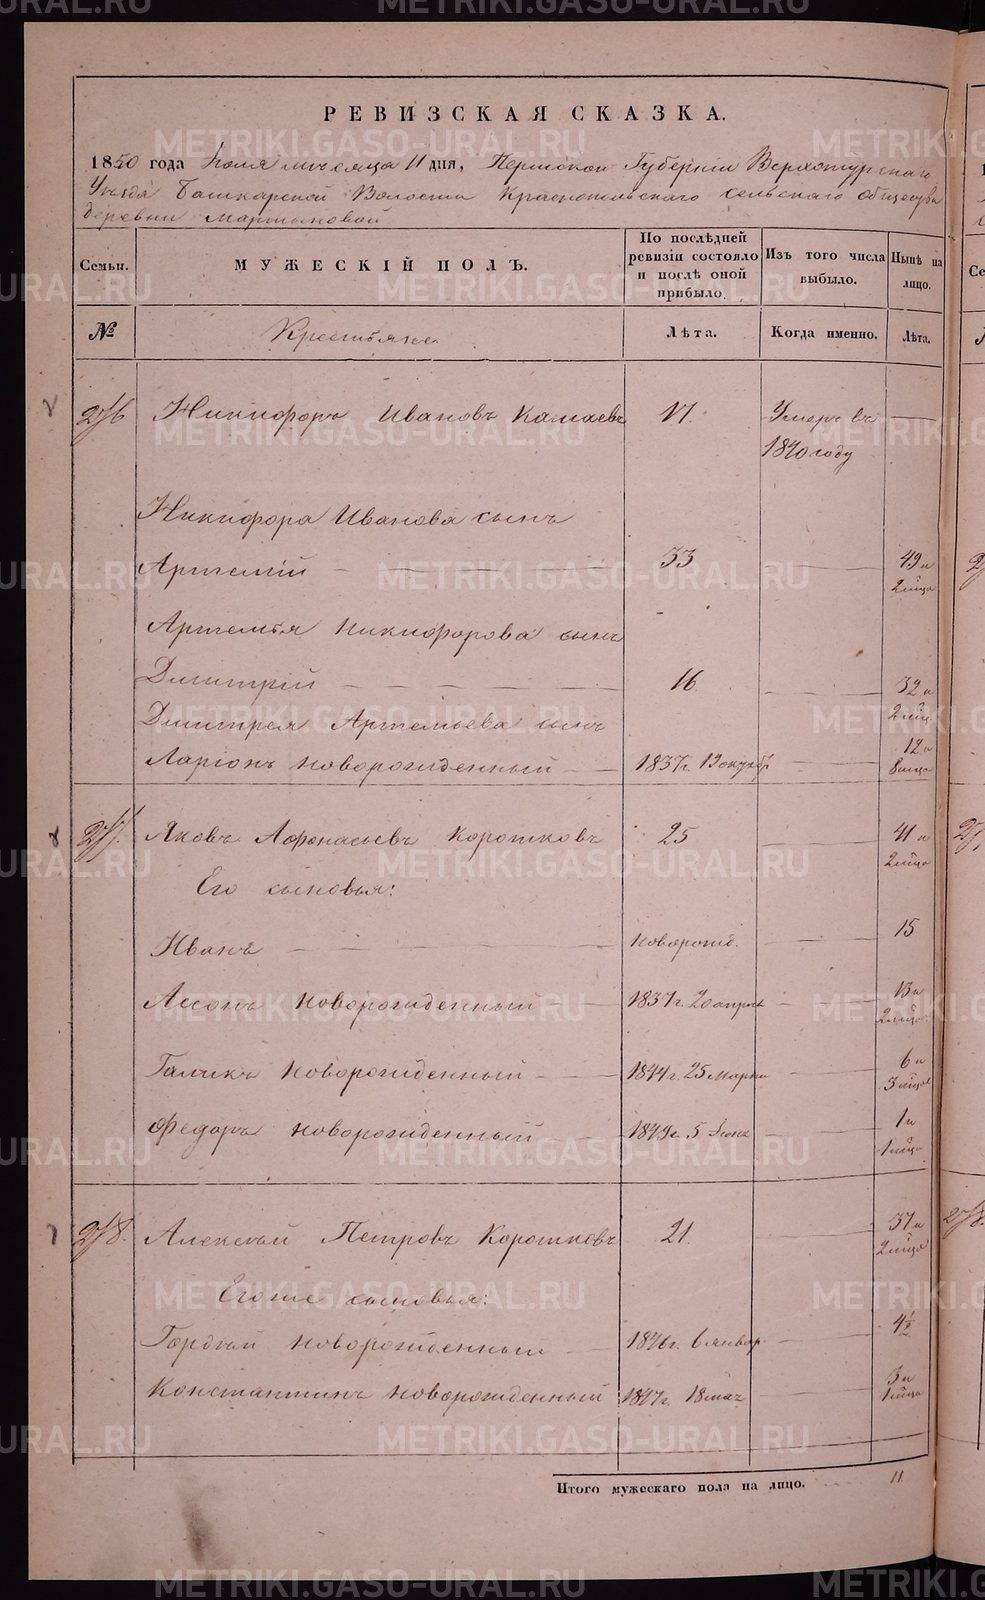 РЕВИЗСКАЯ СКАЗКА.
1850 года Июля месяца 11 дня, Пермской Губернии Верхотурскаго
Уезда Башкарской Волости Краснопольскаго сельскаго общества
деревни Мартыновой
Семьи. МУЖЕСКІЙ ПОЛЪ. По послѣдней ревизіи состояло и послѣ оной прибыло. Изъ того числа выбыло. Нынѣ на лицо.
№ Крестьяне Лѣта. Когда именно. Лѣта.
276 Никифоръ Ивановъ Камаевъ Умеръ въ
1840 году
Никифора Иванова сынъ
Артемій 33 49 и
2 мѣца
Артемья Никифорова сынъ
Дмитрій 16 32 и
2 мѣц
Дмитрея Артемьева сынъ
Ларіонъ новорожденный 1837 г. 13 октяб 12 и
8 мѣца
277. Яковъ Афонасьевъ Коротковъ 25 41 и
2 мѣца
Его сыновья:
Иванъ новорожд. 15
новорожденный 1837 г. 20 апрѣл 13 и
2 мѣца
новорожденный 1844 г. 25 Марта 6 и
3 мѣца
Федоръ новорожденный 1849 г. 5 Іюня 1 и
1 мѣца
278. Алексѣй Петровъ Коротковъ 21. 37 и
2 мѣца
Егоже сыновья:
Гордѣй новорожденный 1846 г. 6 январ 4 1/2
Константинъ новорожденный 1847 г. 18 мая 3 и
1 мѣца
Итого мужескаго пола на лицо. 11
METRIKI.GASO-URAL.RU